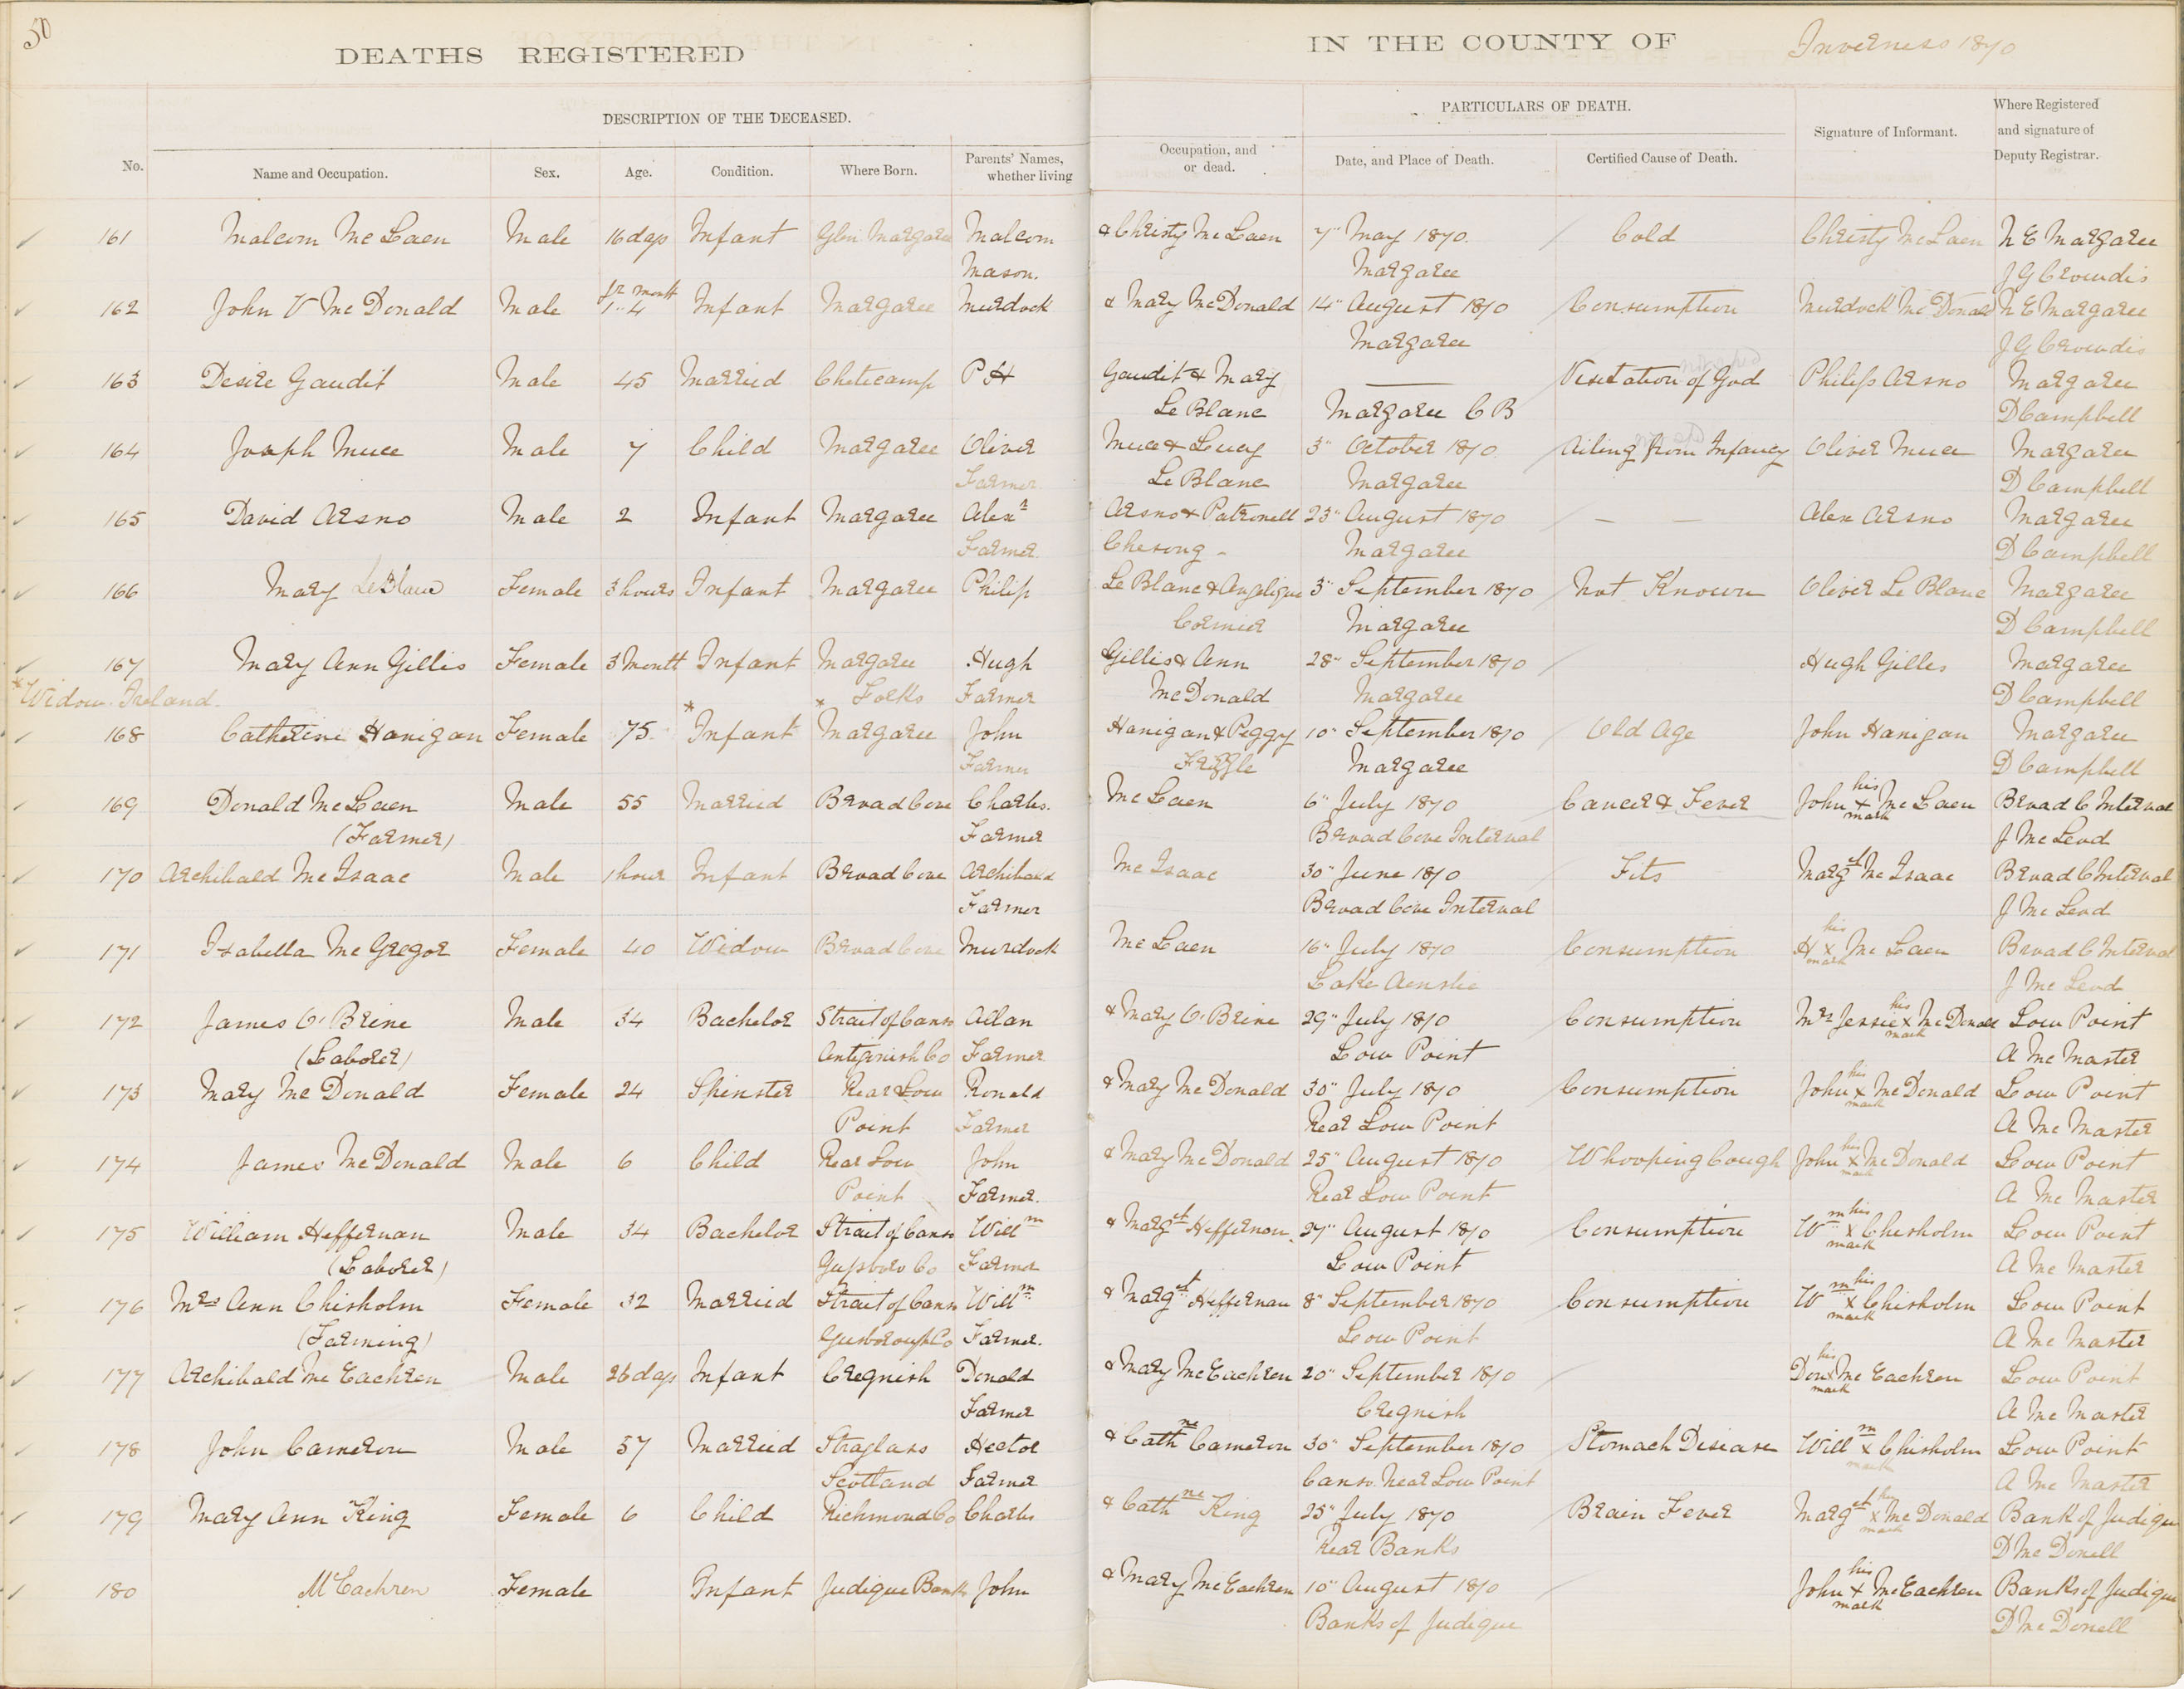 50
DEATHS REGISTERED IN THE COUNTY OF Inverness 1870
DESCRIPTION OF THE DECEASED. PARTICULARS OF DEATH. Signature of Informant. Where Registered and signature of Deputy Registrar.
No. Name and Occupation. Sex. Age. Condition. Where Born. Parents' Names, whether living Occupation, and or dead. Date, and Place of Death. Certified Cause of Death.
161 Malcom McLaen Male 16 days Infant Glen Margaree Malcom & Christy McLaen 7" May 1870. Cold Christy McLaen N E Margaree
Mason. Margaree J G Crowdis
162 John V McDonald Male yr month 1..4 Infant Margaree Murdock & Mary McDonald 14" August 1870 Consumption Murdock McDonald N E Margaree
Margaree J G Crowdis
163 Desire Gaudit Male 45 Married Cheticamp P H Gaudit & Mary — Visitation of God Philip Arsno Margaree
Le Blanc Margaree C B D Campbell
164 Joseph Muce Male 7 Child Margaree Oliver Muce & Lucy 3" October 1870. Ailing from Infancy Oliver Muce Margaree
Farmer. Le Blanc Margaree D Campbell
165 David Arsno Male 2 Infant Margaree Alexr Arsno & Patronell 23" August 1870 — — Alex Arsno Margaree
Farmer. Chesong - Margaree D Campbell
166 Mary LeBlanc Female 3 hours Infant Margaree Philip Le Blanc & Angelique 3" September 1870 Not Known Oliver Le Blanc Margaree
Cormier Margaree D Campbell
167 Mary Ann Gillis Female 3 Month Infant Margaree Hugh Gillis & Ann 28" September 1870 Hugh Gilles Margaree
* Widow. Ireland. * * Forks Farmer McDonald Margaree D Campbell
168 Catherine Hanigan Female 75. Infant Margaree John Hanigan & Peggy 10" September 1870 Old Age John Hanigan Margaree
Farmer Frizzle Margaree D Campbell
169 Donald McLaen Male 55 Married Broad Cove Charles. McLaen 6" July 1870 Cancer & Fever John his x mark McLaen Broad C Interval
(Farmer) Farmer Broad Cove Interval J McLeod
170 Archibald McIsaac Male 1 hour Infant Broad Cove Archibald McIsaac 30" June 1870 Fits Marget McIsaac Broad C Interval
Farmer Broad Cove Interval J McLeod
171 Isabella McGregor Female 40 Widow Broad Cove Murdock McLaen 16" July 1870 Consumption H his x mark McLaen Broad C Interval
Lake Ainslie J McLeod
172 James O'Brine Male 34 Bachelor Strait of Canso Allan & Mary O'Brine 29" July 1870 Consumption Mrs Jessie his x mark McDonald Low Point
(Laborer) Antiginish Co Farmer Low Point A McMaster
173 Mary McDonald Female 24 Spinster Rear Low Ronald & Mary McDonald 30" July 1870 Consumption John his x mark McDonald Low Point
Point Farmer Rear Low Point A McMaster
174 James McDonald Male 6 Child Rear Low John & Mary McDonald 25" August 1870 Whooping Cough John his x mark McDonald Low Point
Point Farmer. Rear Low Point A McMaster
175 William Heffernan Male 34 Bachelor Strait of Canso Willm & Marget Heffernon. 27" August 1870 Consumption Wm his x mark Chisholm Low Point
(Laborer) Guysboro Co Farmer Low Point A McMaster
176 Mrs Ann Chisholm Female 32 Married Strait of Canso Willm & Marget Heffernan 8" September 1870 Consumption Wm his x mark Chisholm Low Point
(Farming) Gusborough Co Farmer. Low Point A McMaster
177 Archibald McEachren Male 26 days Infant Cregnish Donald & Mary McEachren 20" September 1870 Don his x mark McEachren Low Point
Farmer Cregnish A McMaster
178 John Cameron Male 57 Married Straglass Hector & Cathne Cameron 30" September 1870 Stomach Disease Willm x mark Chisholm Low Point
Scotland Farmer Canso. Near Low Point A McMaster
179 Mary Ann King Female 6 Child Richmond Co Charles & Cathne King 25" July 1870 Brain Fever Marget her x mark McDonald Bank of Judique
Rear Banks D McDonell
180 McEachren Female Infant Judique Banks John & Mary McEachren 10" August 1870 John his x mark McEachren Banks of Judique
Banks of Judique D McDonell